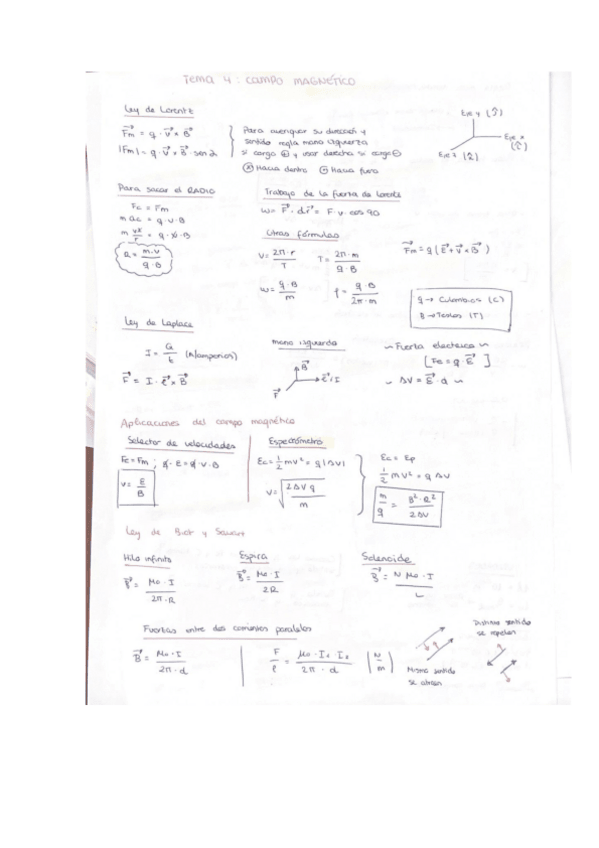 Tema 4: CAMPO MAGNÉTICO
Ley de Lorentz
Fm = q · v × B
|Fm| = q · v · B · sen α
Para averiguar su dirección y
sentido regla mano izquierda
si carga ⊕ y usar derecha si carga ⊖
ⓧ Hacia dentro ⊙ Hacia fuera
Eje y (ĵ)
Eje x
(î)
Eje z (k̂)
Para sacar el RADIO
Fc = Fm
m ac = q · v · B
m v² / r = q · v · B
R = m · v / q · B
Trabajo de la fuerza de Lorentz
W = F · dr = F · v · cos 90
Otras fórmulas
V = 2π · r / T
T = 2π · m / q · B
Fm = q (E + v × B)
ω = q · B / m
f = q · B / 2π · m
q → Culombios (C)
B → Teslas (T)
Ley de Laplace
I = Q / t (Amperios)
F = I · ℓ × B
mano izquierda
B
ℓ = I
F
~ Fuerza eléctrica ~
[Fe = q · E]
~ ΔV = E · d ~
Aplicaciones del campo magnético
Selector de velocidades
Fe = Fm ; q · E = q · v · B
V = E / B
Espectrómetro
Ec = 1/2 mv² = q |ΔV|
V = √(2ΔV q / m)
Ec = Ep
1/2 mv² = q ΔV
m / q = B² · R² / 2ΔV
Ley de Biot y Savart
Hilo infinito
B = μ₀ · I / 2π · R
Espira
B = μ₀ · I / 2R
Solenoide
B = N μ₀ · I / L
Fuerzas entre dos corrientes paralelos
B = μ₀ · I / 2π · d
F / ℓ = μ₀ · I₁ · I₂ / 2π · d [N / m]
Mismo sentido
se atraen
Distinto sentido
se repelen